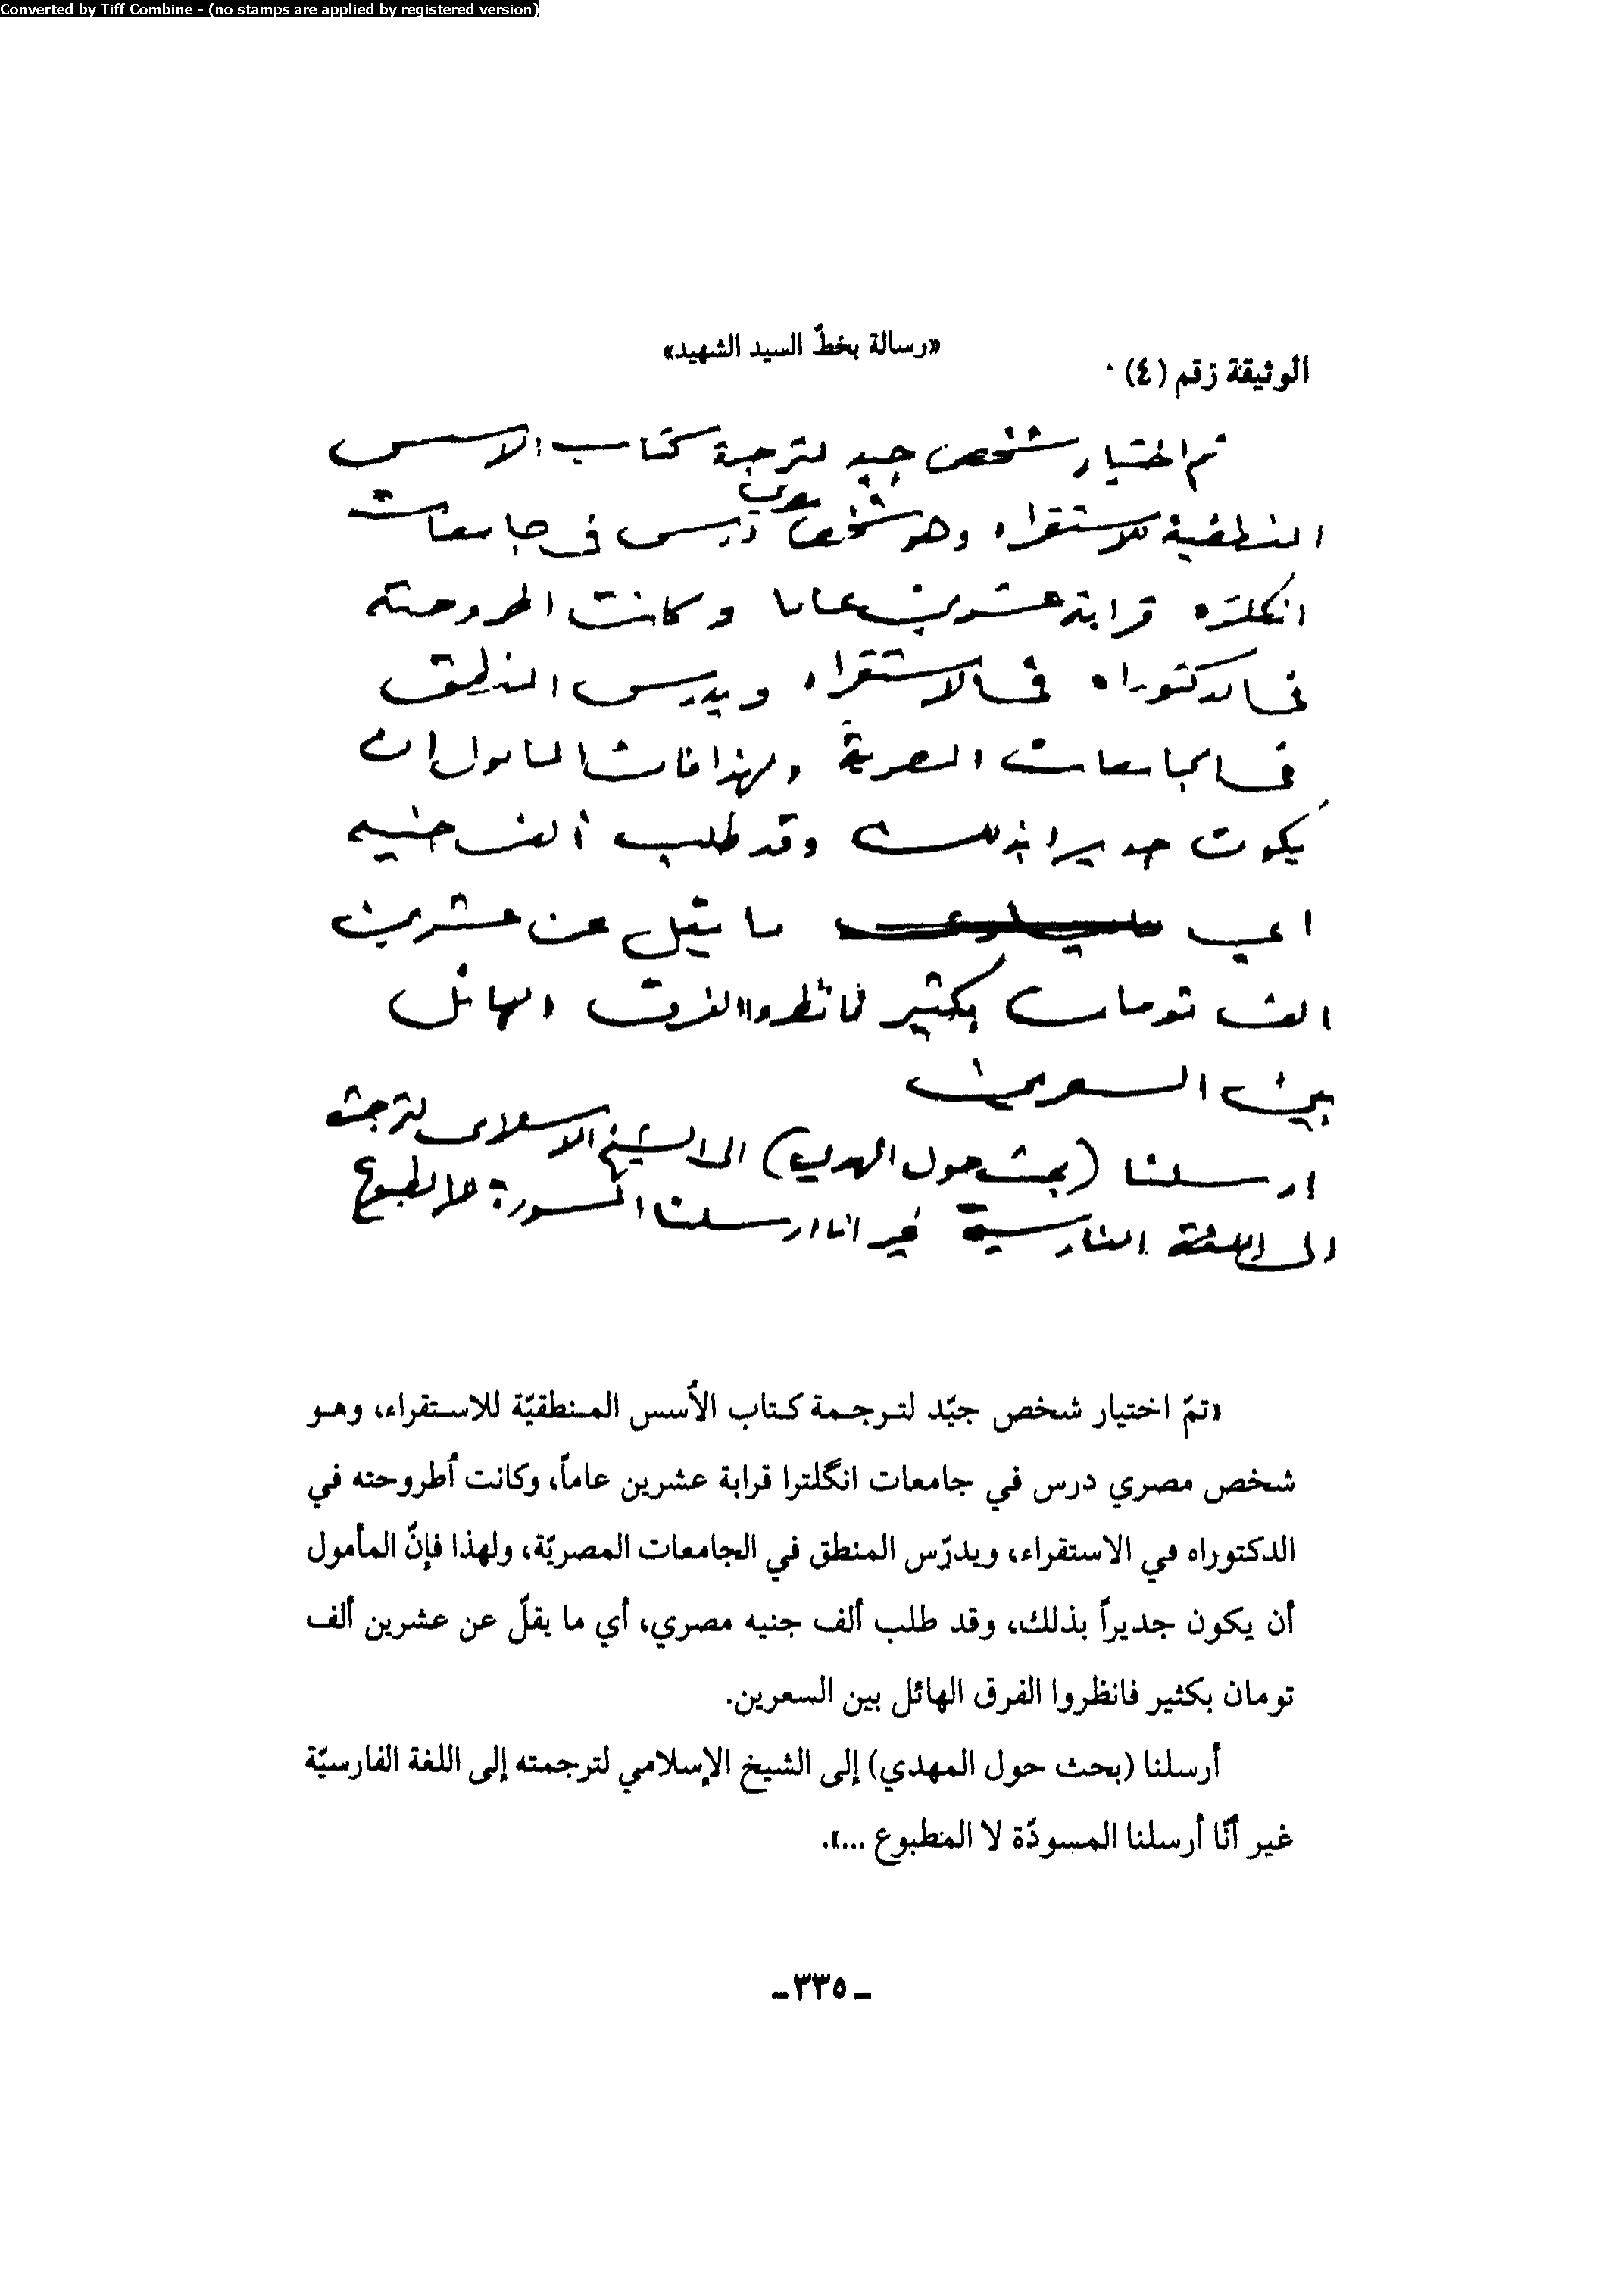 Converted by Tiff Combine - (no stamps are applied by registered version)
«رسالة بخطّ السيد الشهيد»
الوثيقة رقم (٤)
تم اختيار شخص جيد لترجمة كتاب الاسس
المنطقية للاستقراء وهو شخص مصري درس في جامعات
انكلتره قرابة عشرين عاما وكانت اطروحته
في الدكتوراه في الاستقراء ويدرس المنطق
في الجامعات المصرية ولهذا فان المامول ان
يكون جديرا بذلك وقد طلب ألف جنيه
اي ما يقل عن عشرين
الف تومان بكثير فانظروا الفرق الهائل
بين السعرين
ارسلنا (بحث حول المهدي) الى الشيخ الاسلامي لترجمته
الى اللغة الفارسية غير انا ارسلنا المسودة لا المطبوع
«تمّ اختيار شخص جيّد لترجمة كتاب الأسس المنطقيّة للاستقراء، وهو
شخص مصري درس في جامعات انگلترا قرابة عشرين عاماً، وكانت أطروحته في
الدكتوراه في الاستقراء، ويدرّس المنطق في الجامعات المصريّة، ولهذا فإنّ المأمول
أن يكون جديراً بذلك، وقد طلب ألف جنيه مصري، أي ما يقلّ عن عشرين ألف
تومان بكثير فانظروا الفرق الهائل بين السعرين.
أرسلنا (بحث حول المهدي) إلى الشيخ الإسلامي لترجمته إلى اللغة الفارسيّة
غير أنّا أرسلنا المسودّة لا المطبوع ...».
ـ ٣٣٥ ـ